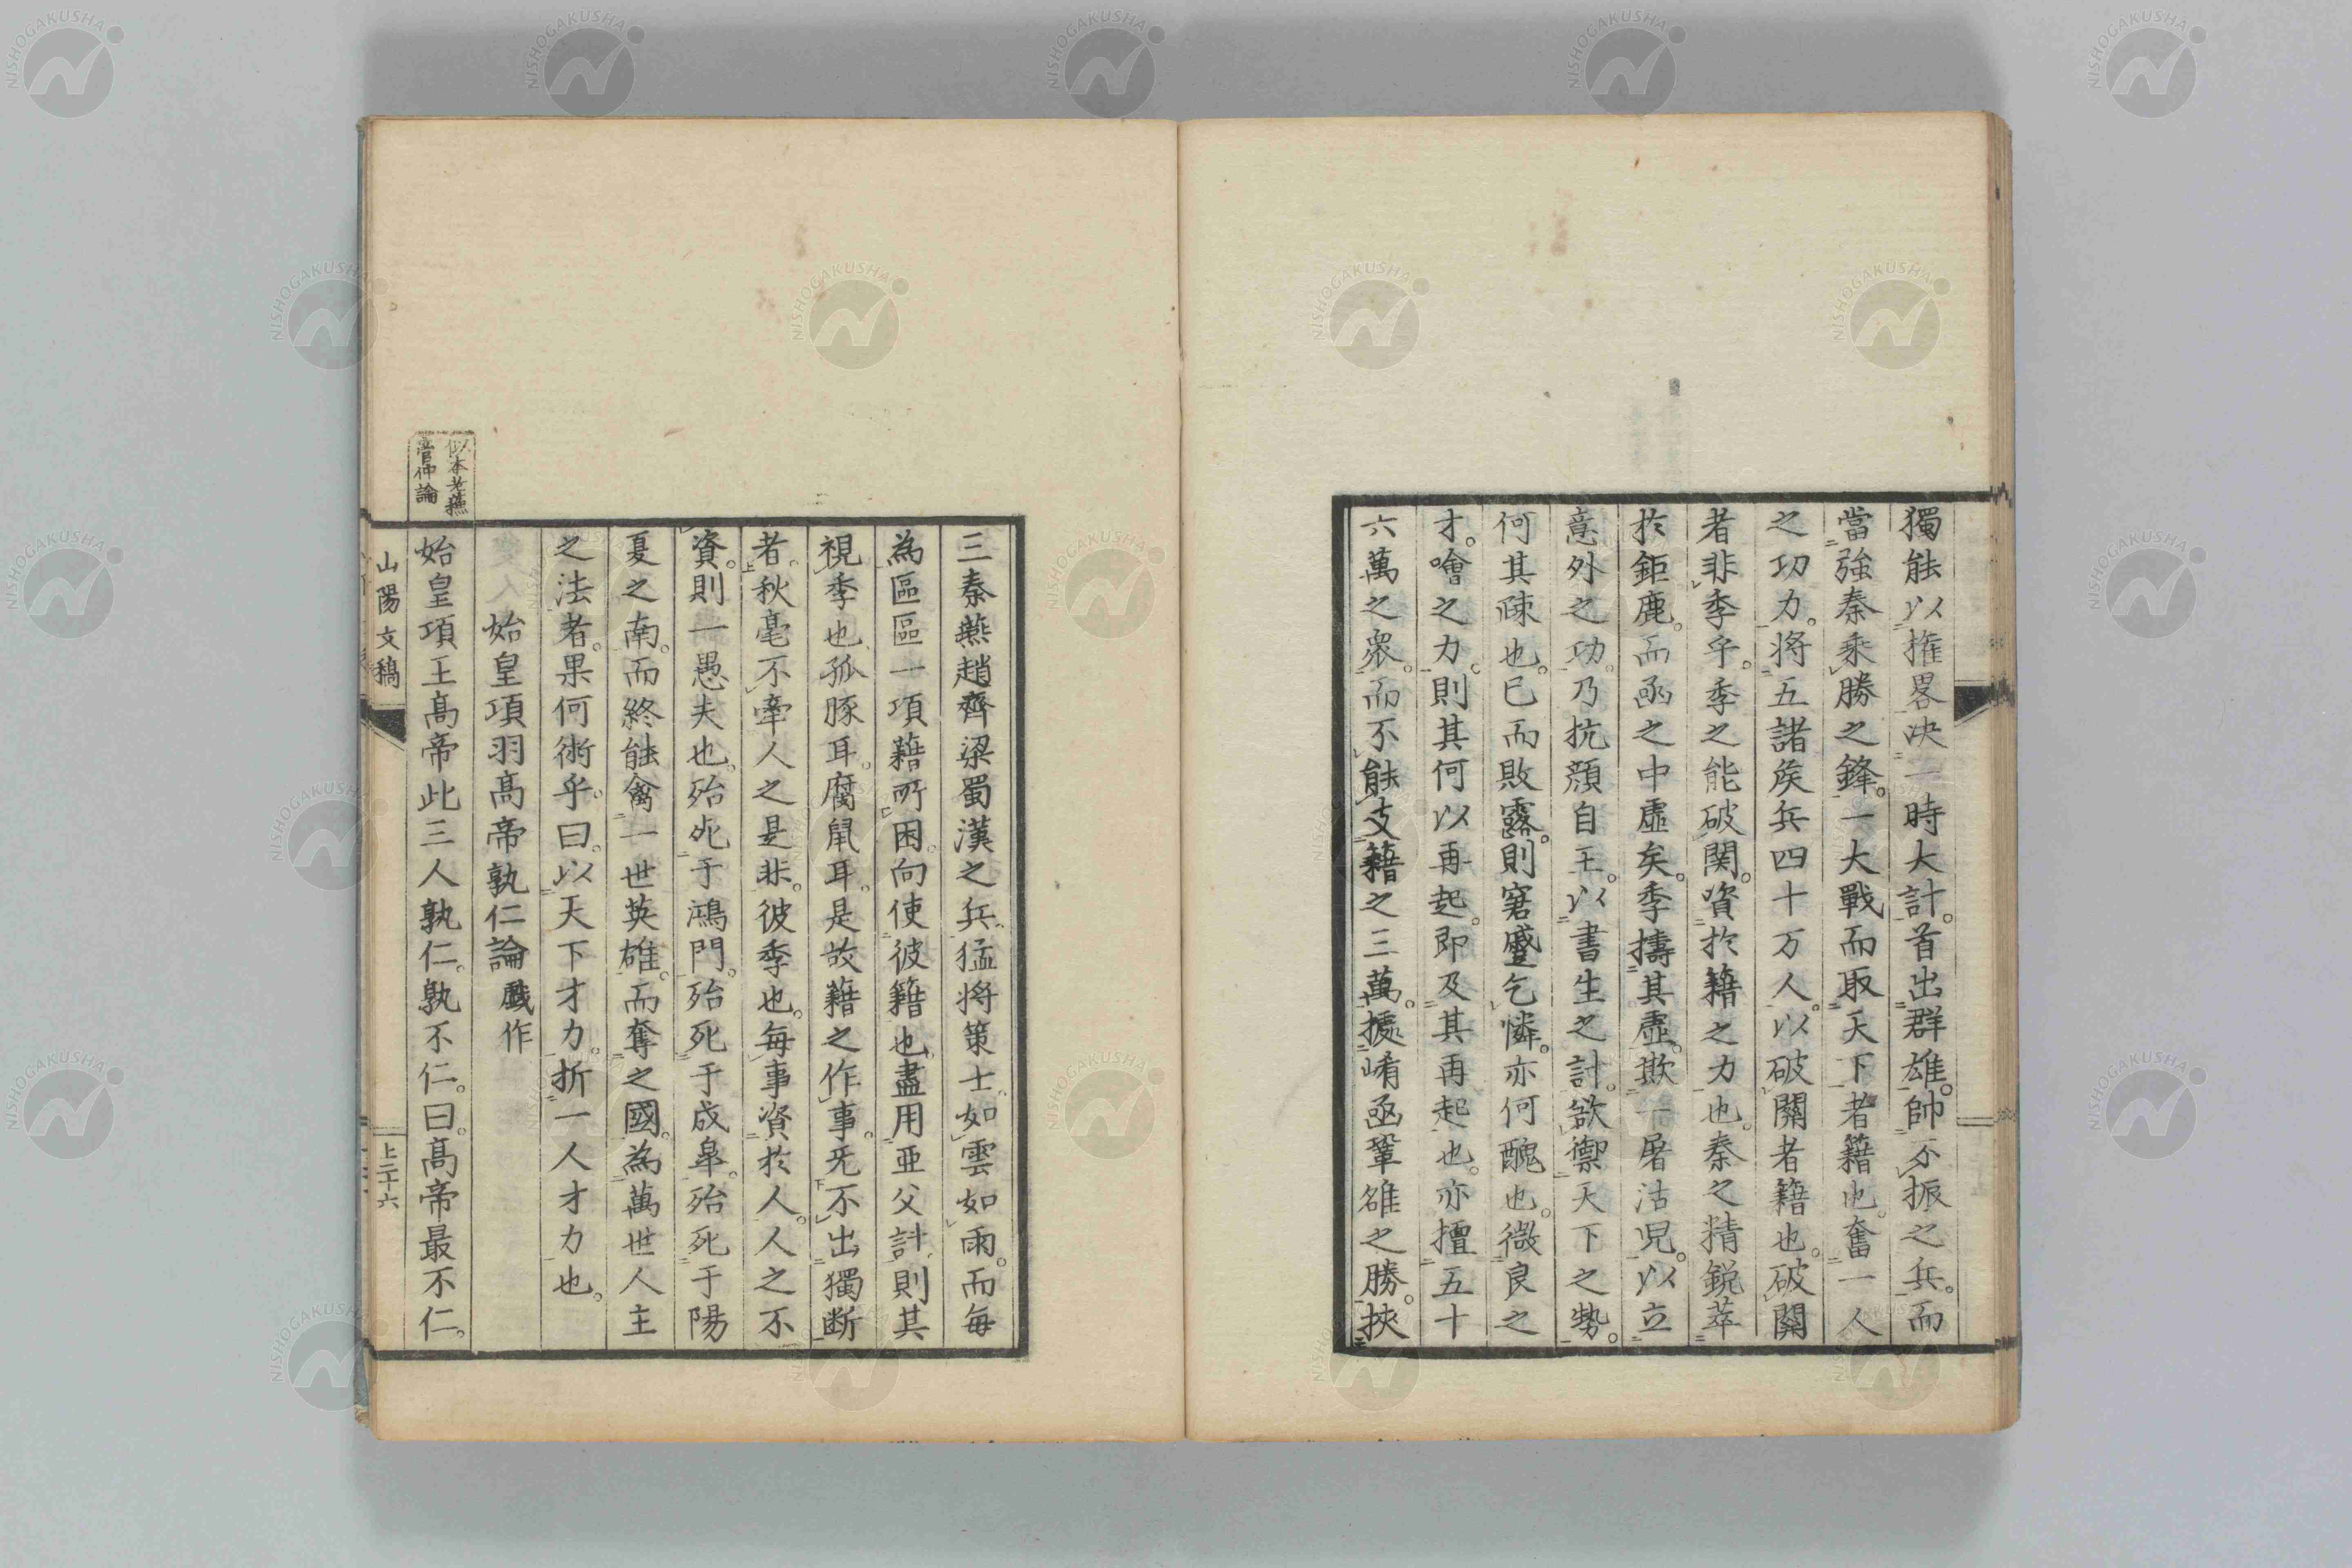 獨能以権畧决一時大計。首出群雄。帥不振之兵。而
當強秦乘勝之鋒。一大戰而取天下者籍也。奮一人
之功力。將五諸矦兵四十万人。以破關者籍也。破關
者非季乎。季之能破関。資於籍之力也。秦之精鋭萃
於鉅鹿。而函之中虛矣。季擣其虛。欺一屠沽児。以立
意外之功。乃抗顔自王。以書生之計。欲禦天下之勢。
何其疎也。已而敗露。則窘蹙乞憐。亦何醜也。微良之
才。噲之力。則其何以再起。即及其再起也。亦擅五十
六萬之衆。而不能支籍之三萬。據崤函鞏雒之勝。挾
三秦燕趙齊梁蜀漢之兵。猛將策士。如雲如雨。而毎
為區區一項籍所困。向使彼籍也。盡用亜父計。則其
視季也。孤豚耳。腐鼠耳。是故籍之作事。无不出獨断
者。秋毫不牽人之是非。彼季也。毎事資於人。人之不
資。則一愚夫也。殆死于鴻門。殆死于成皐。殆死于陽
夏之南。而終能禽一世英雄。而奪之國。為萬世人主
之法者。果何術乎。曰。以天下才力。折一人才力也。
始皇項羽高帝孰仁論 戲作
似本老蘇
管仲論
始皇項王高帝此三人孰仁。孰不仁。曰。高帝最不仁。
山陽文稿
上二十六
NISHOGAKUSHA